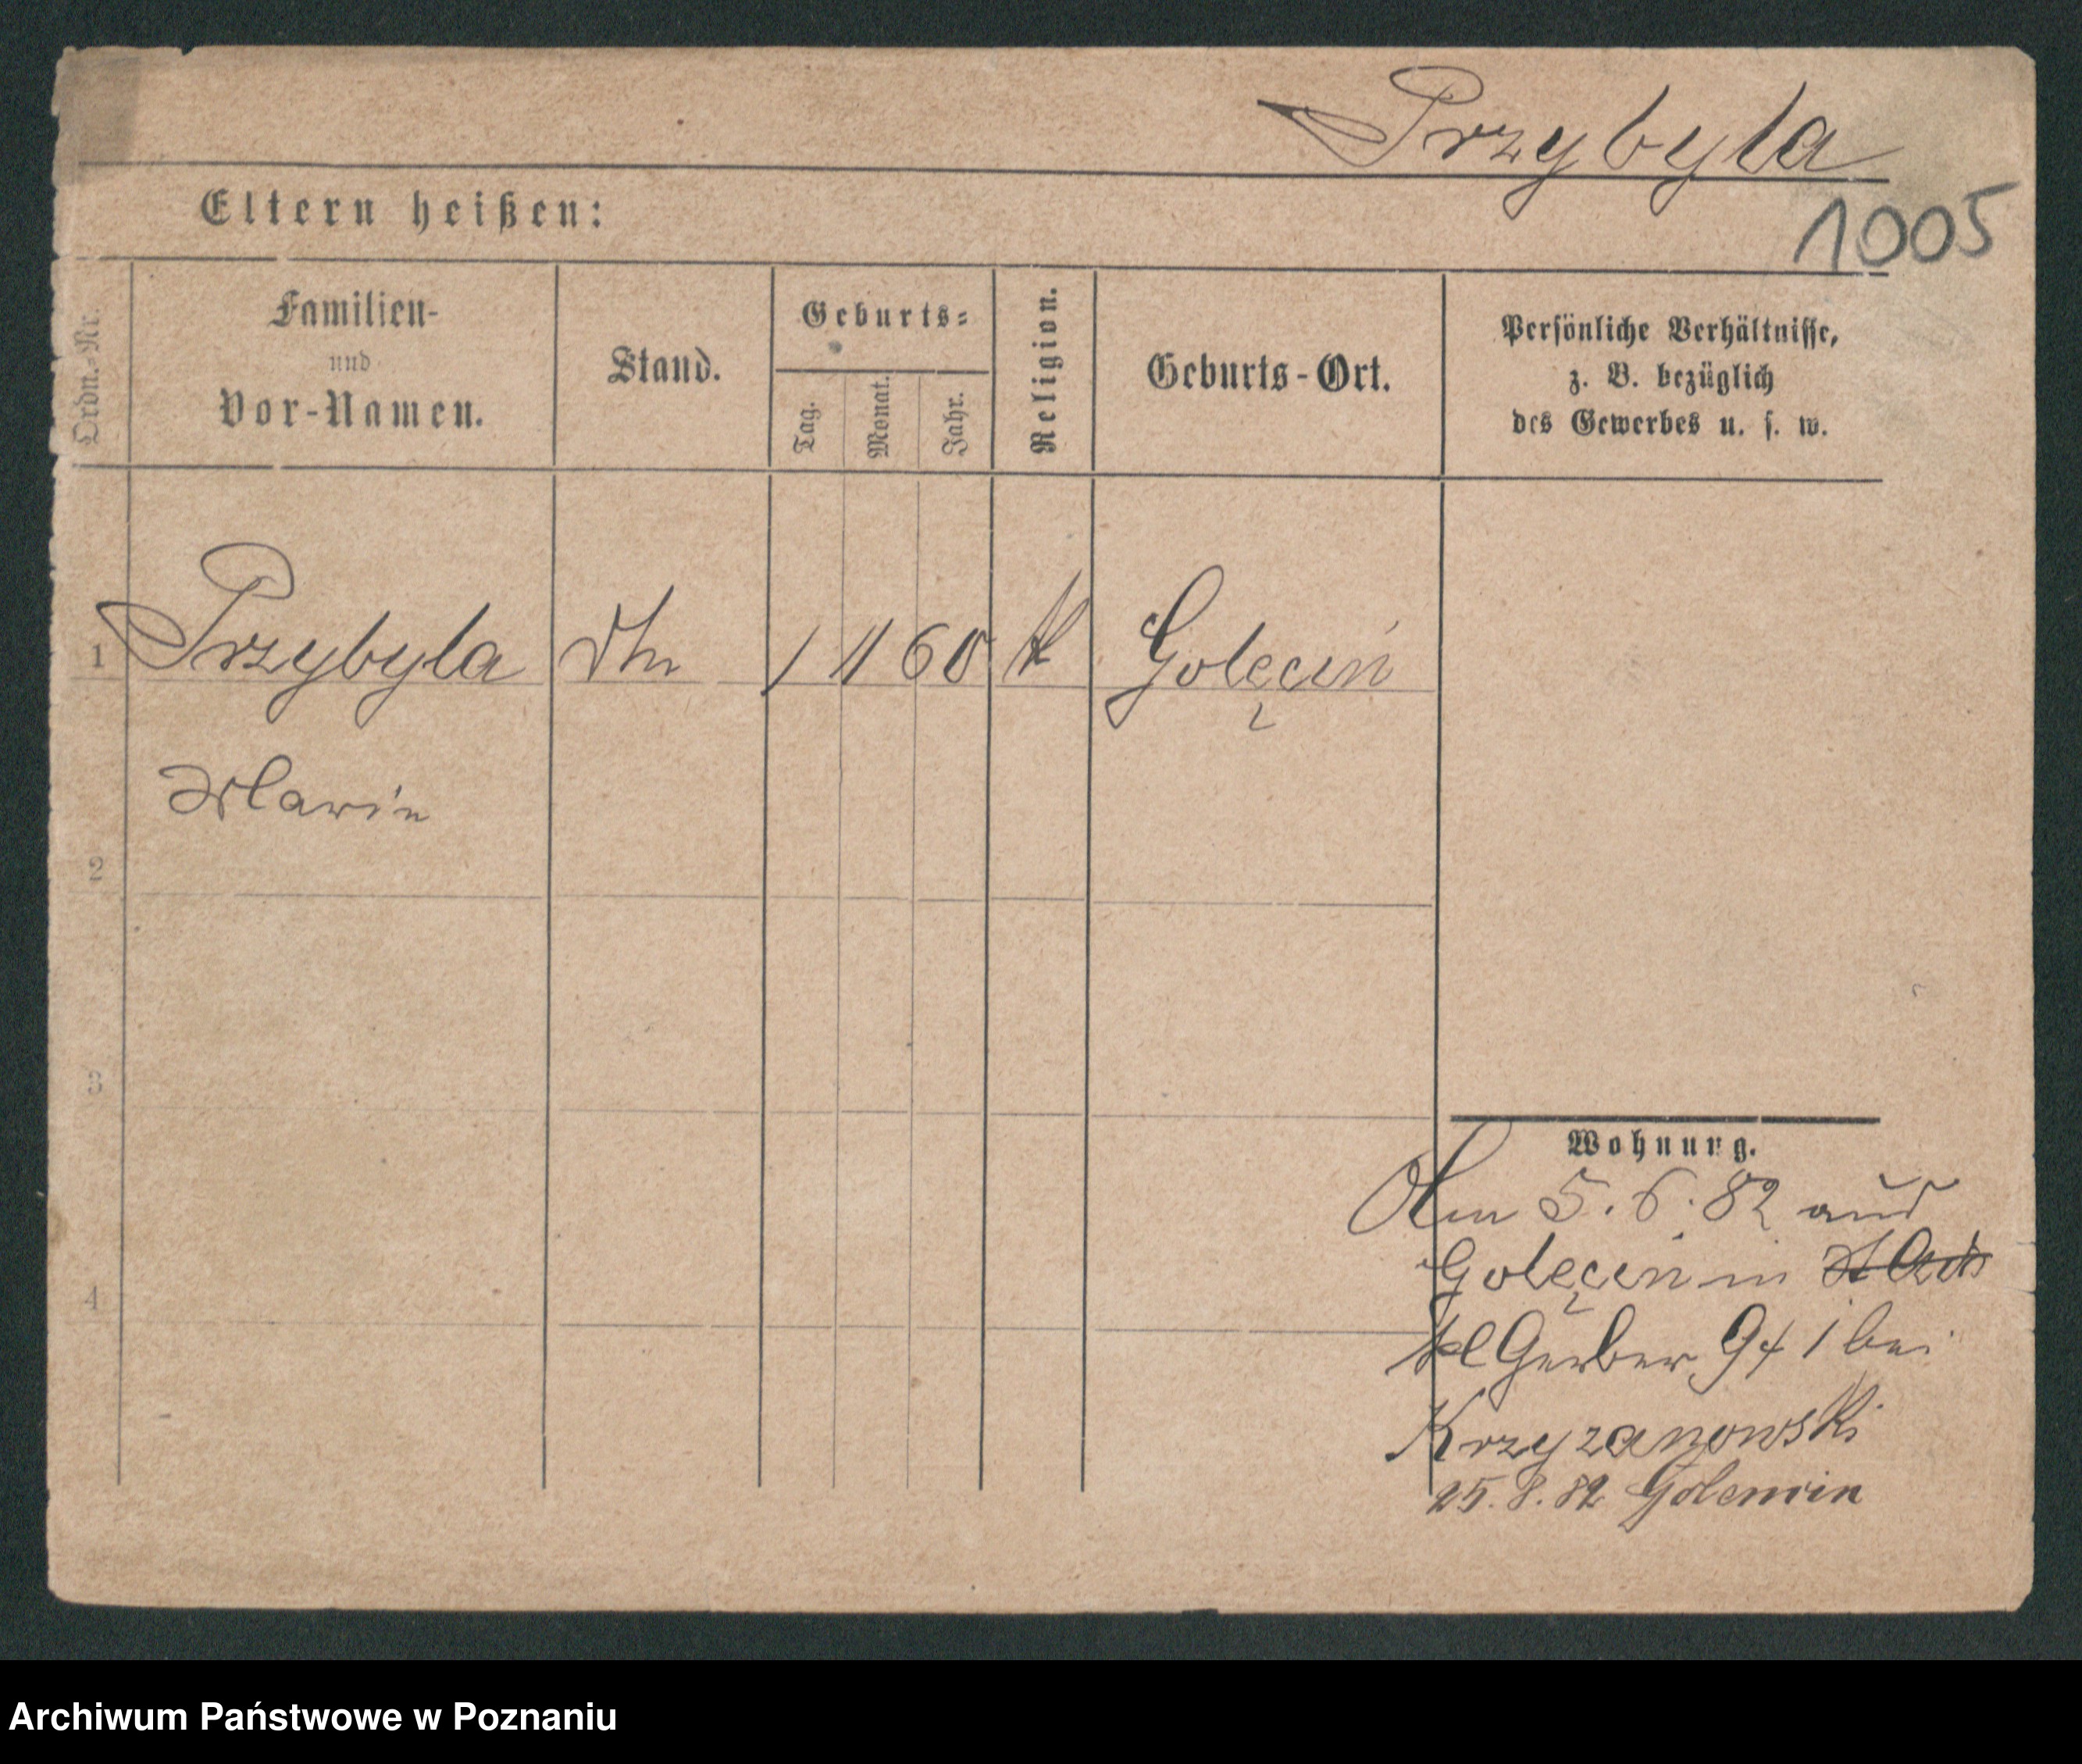 Przybyla
1005
Eltern heißen:
Ordn.-Nr.
Familien-
und
Vor-Namen.
Stand.
Geburts=
Tag.
Monat.
Jahr.
Religion.
Geburts-Ort.
Persönliche Verhältnisse,
z. B. bezüglich
des Gewerbes u. s. w.
1 Przybyla 1 11 60 k Golęcin
Marie
2
3
4
Wohnung.
Am 5.6.82 aus
Golęcin in
Kl Gerber 9 bei
Krzyzanowski
25.8.82 Golencin
Archiwum Państwowe w Poznaniu